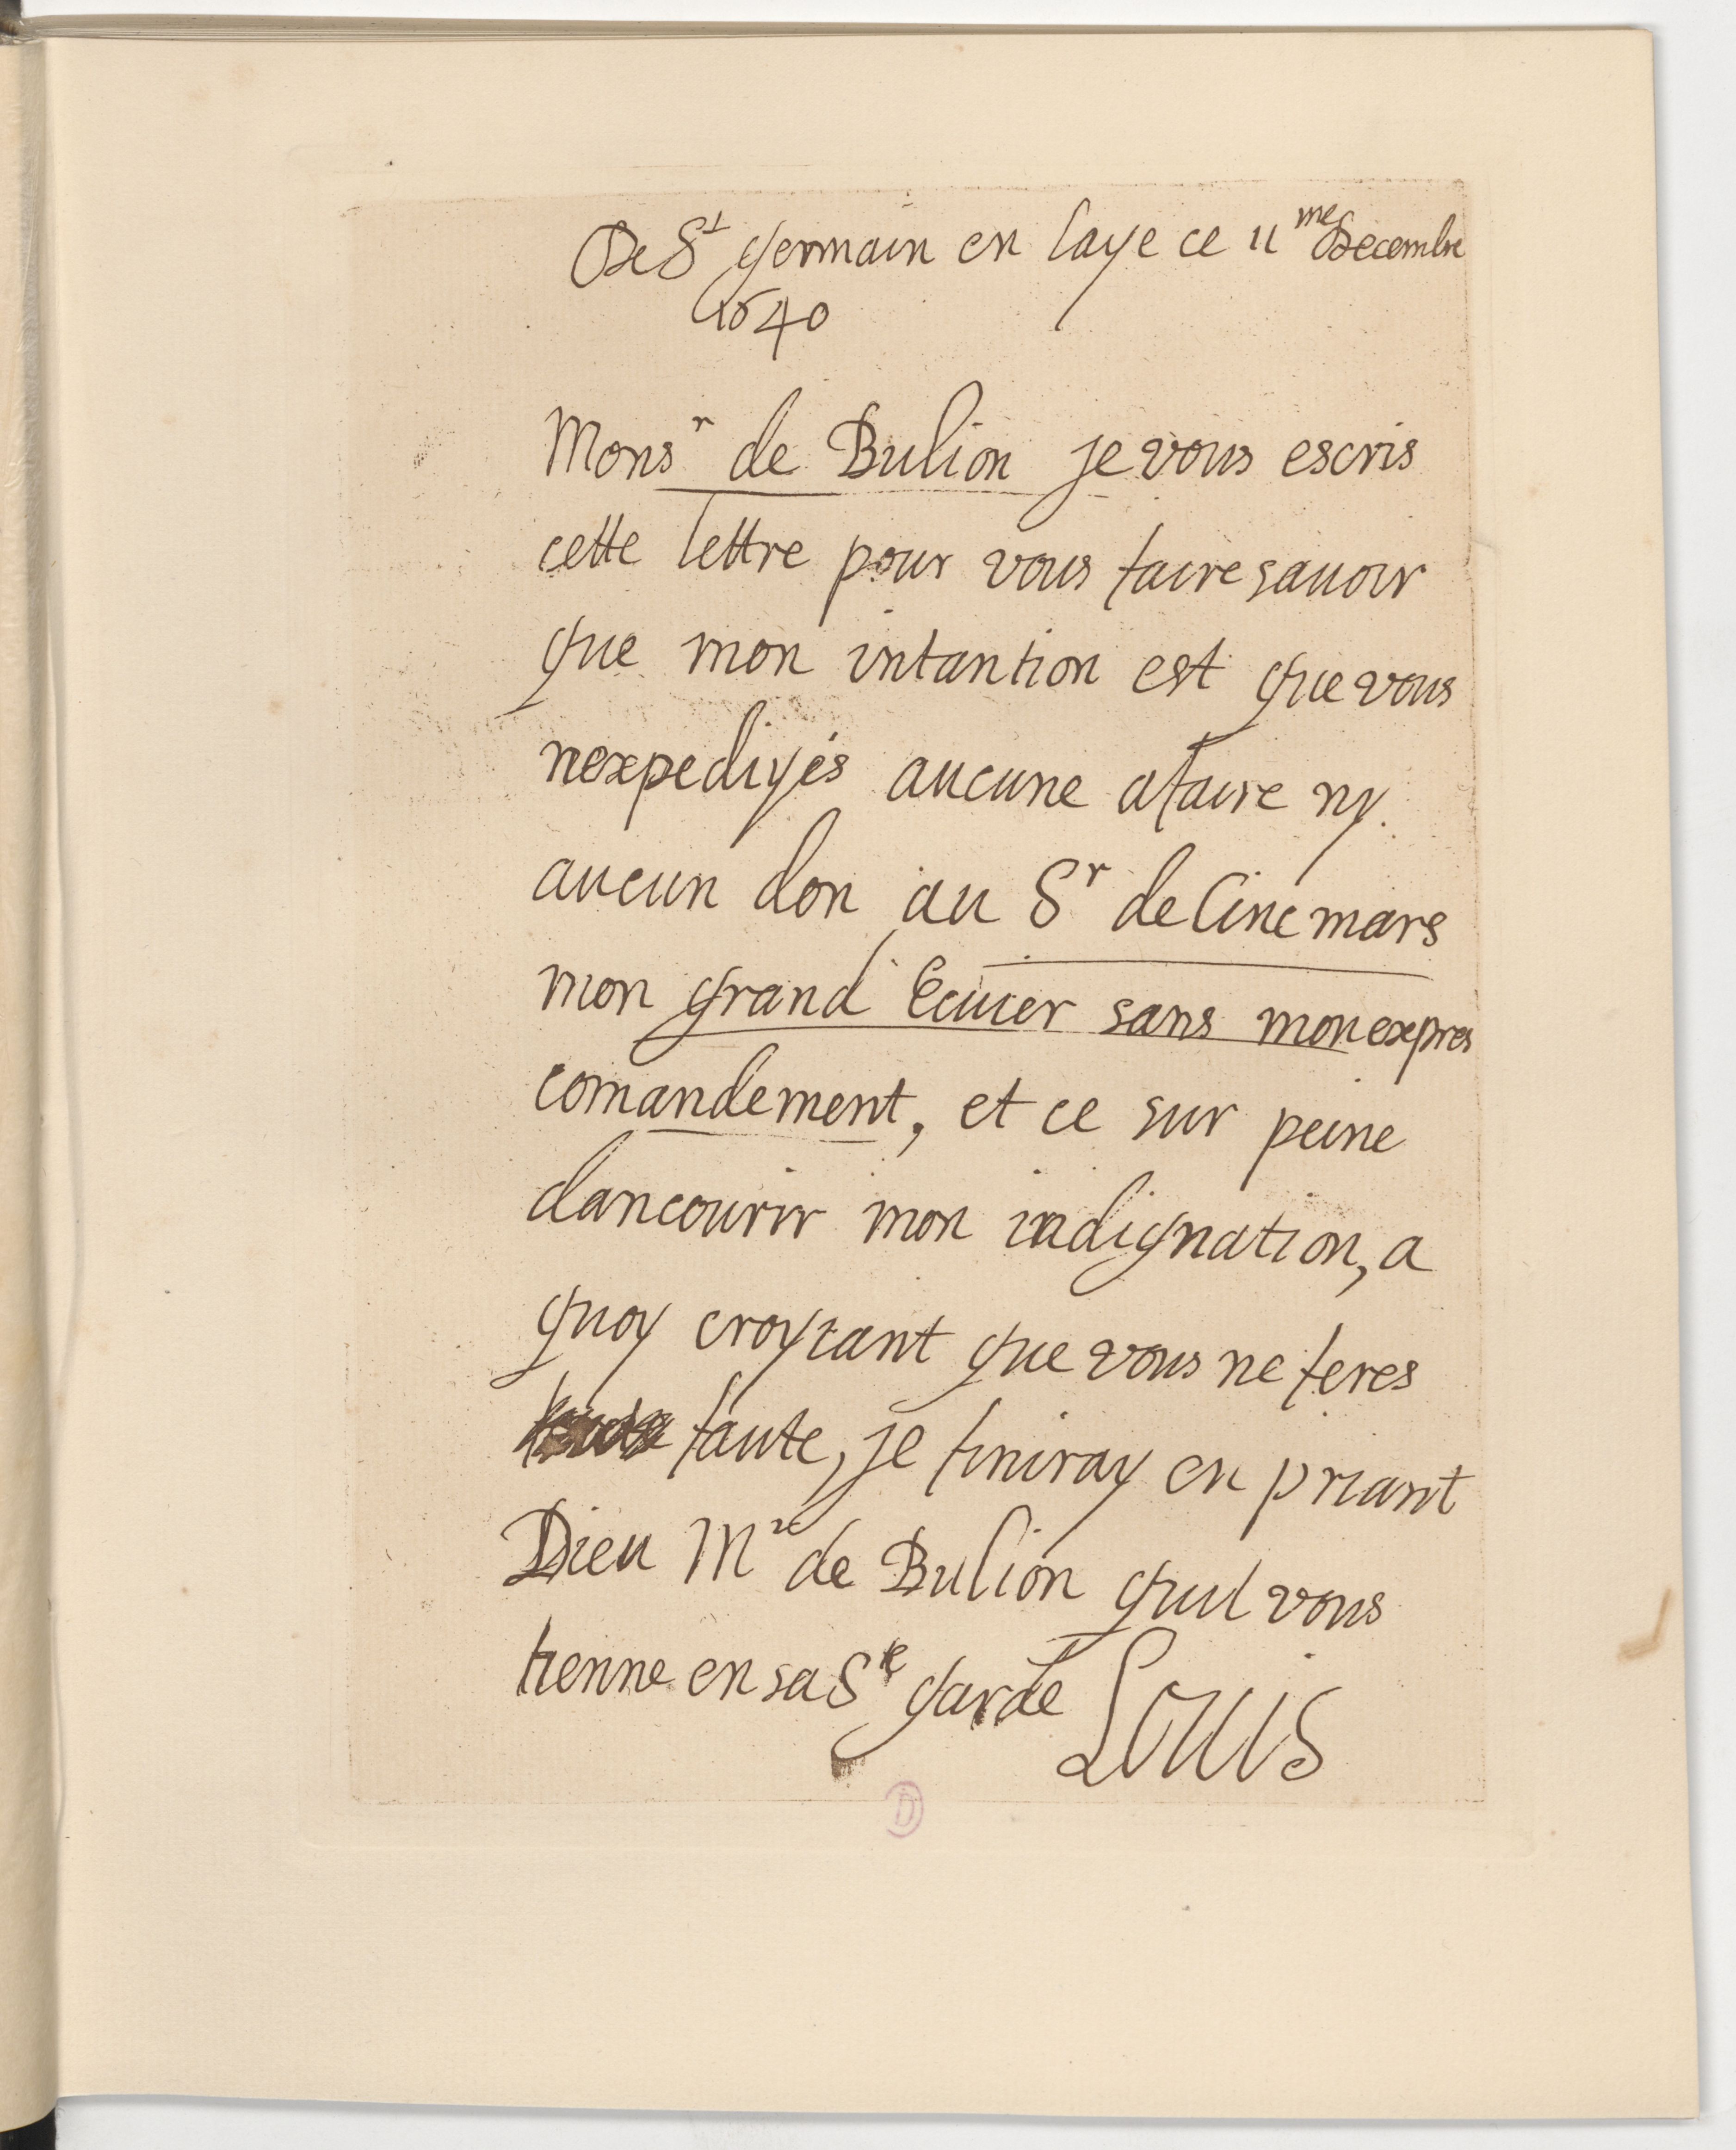 De S^t germain en laye ce 11^me decembre
1640
Mons^r de Bulion je vous escris
cette lettre pour vous faire sauoir
que mon intantion est que vous
nexpediyés aucune afaire ny
aucun don au S^r de Cinc mars
mon grand Ecuier sans mon expres
comandement, et ce sur peine
dancourir mon indignation, a
quoy croyant que vous ne feres
faute, je finiray en priant
Dieu M^r de Bulion quil vous
tienne en sa S^te garde Louis
D